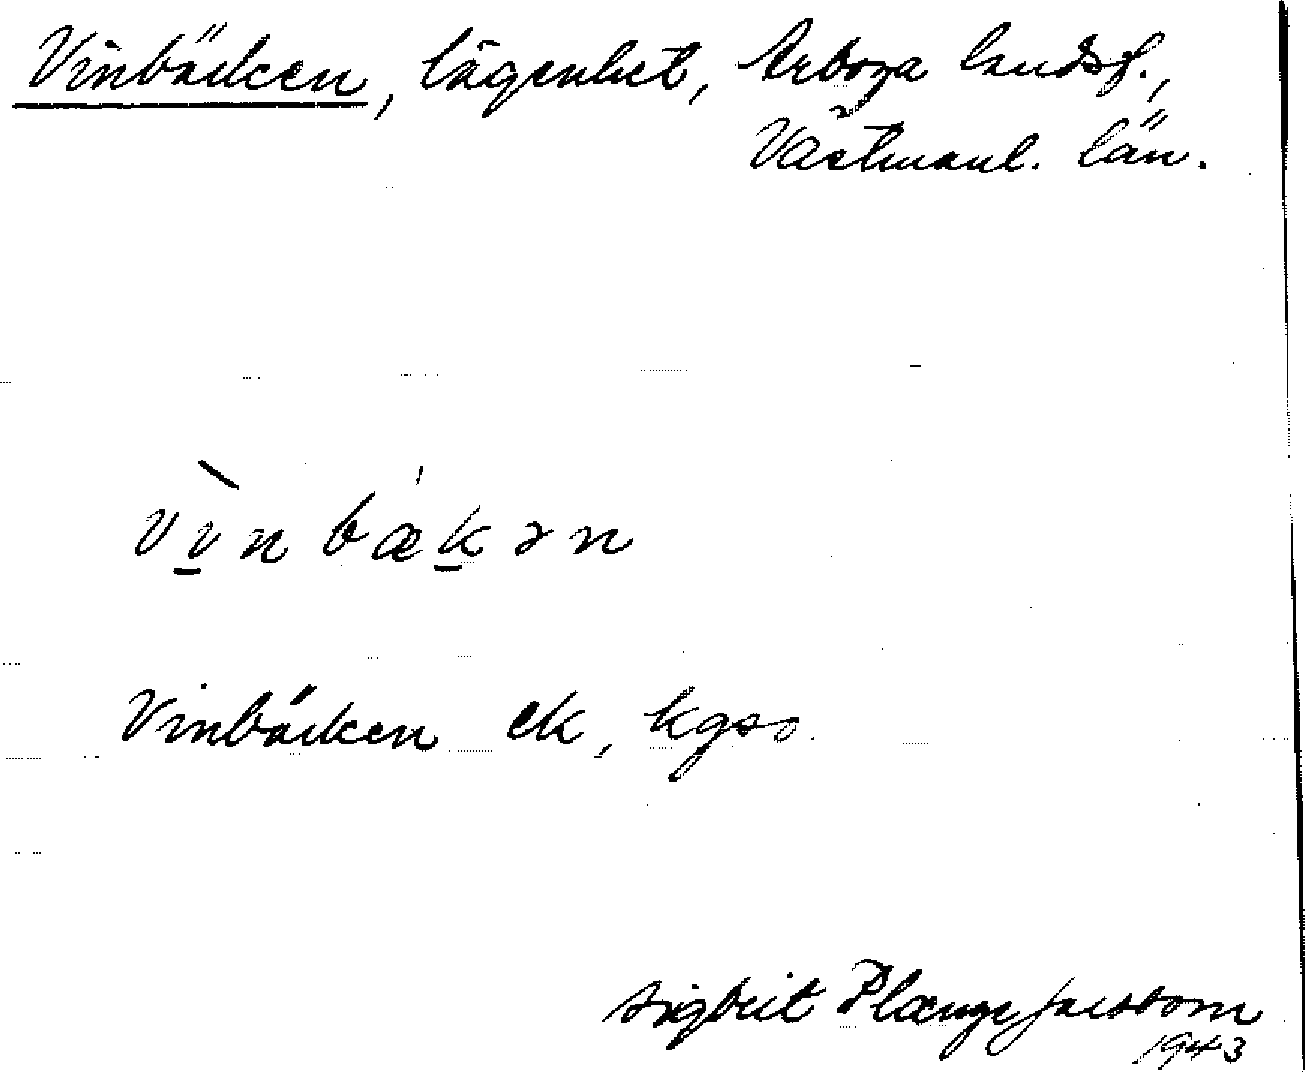 Vinbäcken, lägenhet, Arboga landsf.,
Västmanl. län.
vìnbækən
Vinbäcken ek, kgso.
Sigbrit Plænge Jacobson
1943